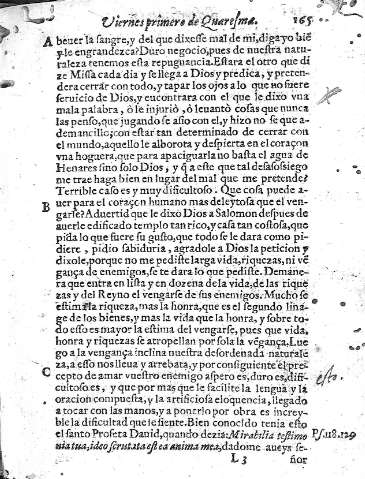 Viernes primero de Quaresma. 165
A beuer la sangre, y del que dixesse mal de mi, digayo biẽ
y le engrandezca? Duro negocio, pues de nuestra natu-
raleza tenemos esta repugnancia. Estara el otro que di
ze Missa cada dia y se llega a Dios y predica, y preten-
dera cerrar con todo, y tapar los ojos a lo que no fuere
seruicio de Dios, y encontrara con el que le dixo vna
mala palabra, ò le injuriò, ò leuantò cosas que nunca
las penso, que jugando se asio con el, y hizo no se que a-
demancillo; con estar tan determinado de cerrar con
el mundo, aquello le alborota y despierta en el coraçon
vna hoguera, que para apaciguarla no basta el agua de
Henares sino solo Dios, y q̃ a este que tal desasossiego
me trae haga bien en lugar del mal que me pretende?
Terrible caso es y muy dificultoso. Que cosa puede a-
B uer para el coraçon humano mas deleytosa que el ven-
garse? Aduertid que le dixo Dios a Salomon despues de
auerle edificado templo tan rico, y casa tan costosa, que
pida lo que fuere su gusto, que todo se le dara como pi-
diere, pidio sabiduria, agradole a Dios la peticion y
dixole, porque no me pediste larga vida, riquezas, ni vẽ
gança de enemigos, se te dara lo que pediste. Demane-
ra que entra en lista y en dozena de la vida, de las rique
zas y del Reyno el vengarse de sus enemigos. Mucho se
estima la riqueza, mas la honra, que es el segundo lina-
ge de los bienes, y mas la vida que la honra, y sobre to-
do esso es mayor la estima del vengarse, pues que vida,
honra y riquezas se atropellan por sola la vẽgança. Lue
go a la vengança inclina nuestra desordenada naturale
C za, a esso nos lleua y arrebata, y por consiguiente el pre-
cepto de amar vuestro enemigo aspero es, duro es, difi-
cultoso es, y que por mas que le facilite la lengua y la
esto.
oracion compuesta, y la artificiosa eloquencia, llegado
a tocar con las manos, y a ponerlo por obra es increy-
ble la dificultad que le siente. Bien conocido tenia esto
el santo Profeta Dauid, quando dezia: Mirabilia testimo Ps. 118. 129
nia tua, ideo scrutata est ea anima mea, dadome aueys se-
L 3 ñor